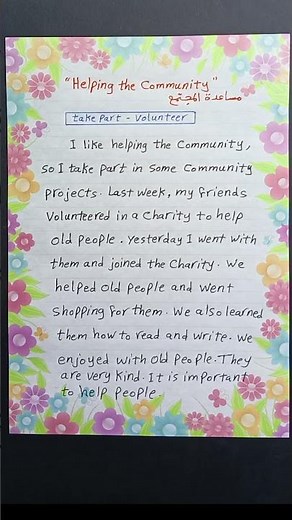 "Helping the Community"
مساعدة المجتمع
take part - volunteer
I like helping the Community,
so I take part in some Community
projects. Last week, my friends
Volunteered in a Charity to help
old people. yesterday I went with
them and joined the Charity. We
helped old people and went
shopping for them. We also learned
them how to read and write. We
enjoyed with old people. They
are very kind. It is important
to help people.